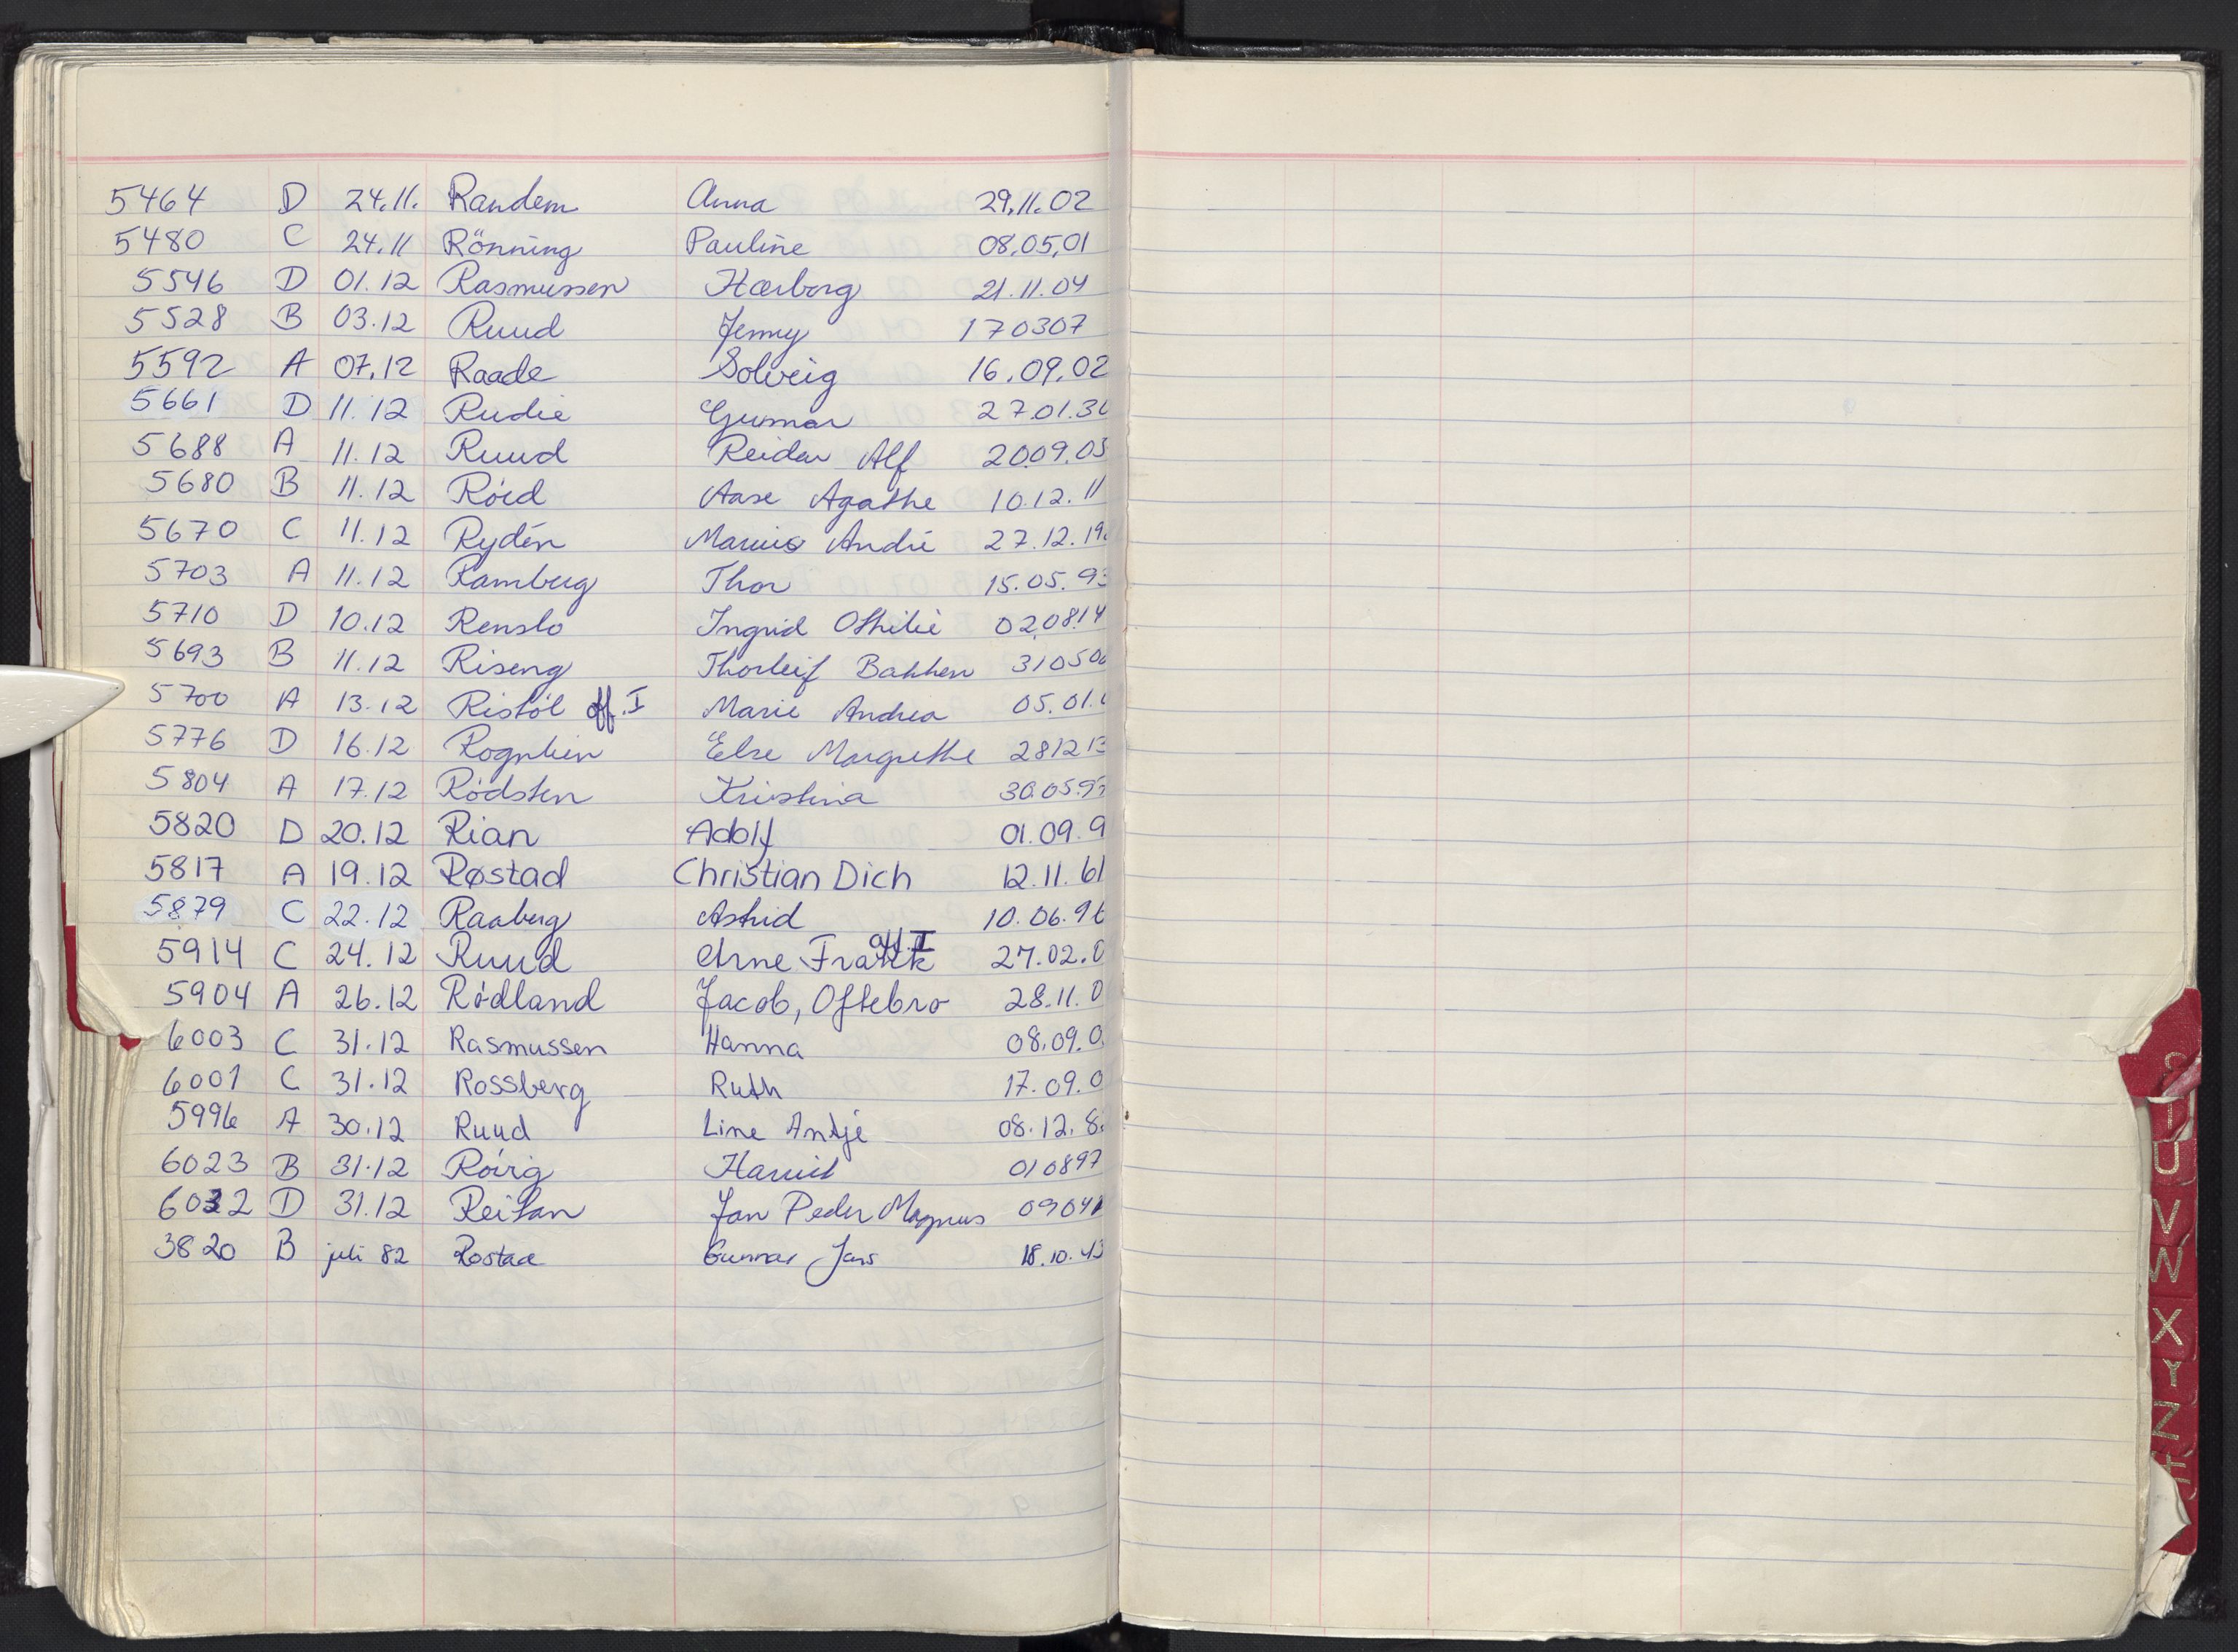 5464 D 24.11. Randem Anna 29.11.02
5480 C 24.11 Rönning Pauline 08.05.01
5546 D 01.12 Rasmussen Hærborg 21.11.04
5528 B 03.12 Ruud Jenny 170307
5592 A 07.12 Raade Solveig 16.09.02
5661 D 11.12 Rudie Gunnar 27.01.3
5688 A 11.12 Ruud Reidar Alf 2009.05
5680 B 11.12 Róed Aase Agathe 10.12.11
5670 C 11.12 Rydén Marius André 27.12.19
5703 A 11.12 Ramberg Thor 15.05.93
5710 D 10.12 Renslo Ingrid Othilie 020814
5693 B 11.12 Riseng Thorleif Bakken 31050
5700 A 13.12 Ristól off. I Marie Andrea 05.01.
5776 D 16.12 Rognlien Else Margrethe 281213
5804 A 17.12 Ródsten Kristina 30.05.9
5820 D 20.12 Rian Adolf 01.09.9
5817 A 19.12 Røstad Christian Dich 12.11.61
5879 C 22.12 Raaberg Astrid 10.06.9
off. I
5914 C 24.12 Ruud Arne Frank 27.02.0
5904 A 26.12 Ródland Jacob, Oftebro 28.11.0
6003 C 31.12 Rasmussen Hanna 08.09.0
6001 C 31.12 Rossberg Ruth 17.09.0
5996 A 30.12 Ruud Line Antje 08.12.8
6023 B 31.12 Róvig Harriet 010897
6032 D 31.12 Reitan Jan Peder Magnus 0904
3820 B juli 82 Rostad Gunnar Jans 18.10.43
U
V
W
X
Y
Z